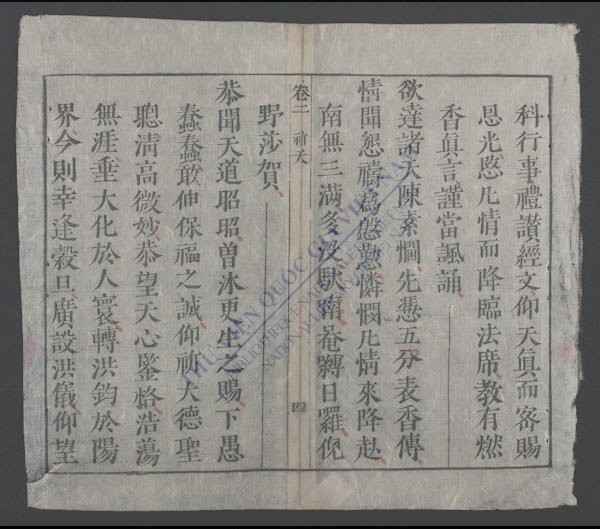 科行事禮讃經文仰天眞而密賜
恩光愍凢情而降臨法席教有燃
香眞言謹當諷誦
欲達諸天陳素悃先憑五分表香傳
情聞懇禱為慇懃憐憫凢情來降赴
南無三滿多沒馱喃唵縛日羅俔
卷二 祈天 四
野莎賀
恭聞天道昭昭曽沐更生之賜下愚
蠢蠢敢伸保福之誠仰祈大德聖
聰清高微妙恭望天心鑒格浩蕩
無涯垂大化於人寰轉洪鈞於陽
界今則幸逢穀旦廣設洪儀仰望
THƯ VIỆN QUỐC GIA VIỆT NAM